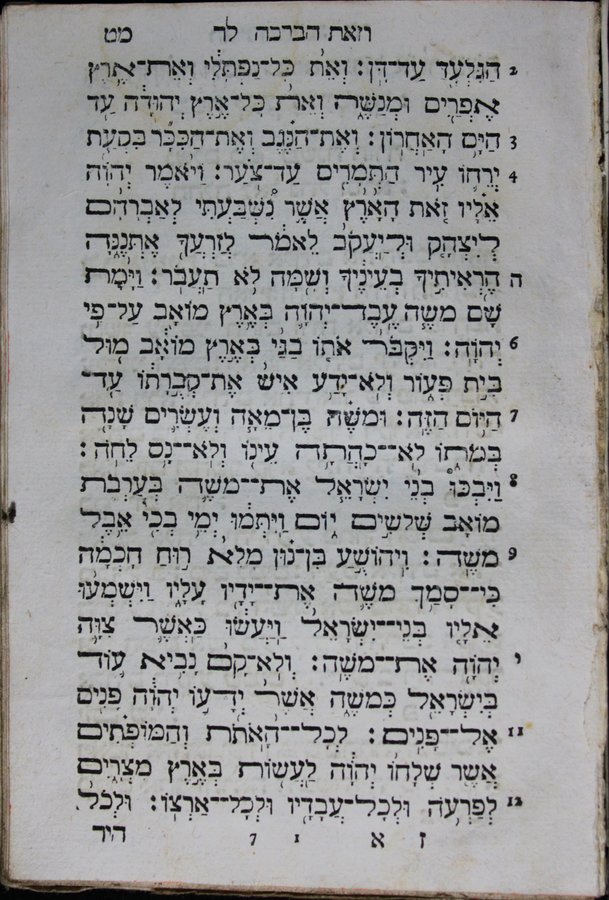 וזאת הברכה לד מט
הַגִּלְעָד עַד־דָּן׃ וְאֵת כָּל־נַפְתָּלִי וְאֶת־אֶרֶץ 2
אֶפְרַיִם וּמְנַשֶּׁה וְאֵת כָּל־אֶרֶץ יְהוּדָה עַד
הַיָּם הָאַחֲרוֹן׃ וְאֶת־הַנֶּגֶב וְאֶת־הַכִּכָּר בִּקְעַת 3
יְרֵחוֹ עִיר הַתְּמָרִים עַד־צֹעַר׃ וַיֹּאמֶר יְהֹוָה 4
אֵלָיו זֹאת הָאָרֶץ אֲשֶׁר נִשְׁבַּעְתִּי לְאַבְרָהָם
לְיִצְחָק וּלְיַעֲקֹב לֵאמֹר לְזַרְעֲךָ אֶתְּנֶנָּה
הֶרְאִיתִיךָ בְעֵינֶיךָ וְשָׁמָּה לֹא תַעֲבֹר׃ וַיָּמָת ה
שָׁם מֹשֶׁה עֶבֶד־יְהֹוָה בְּאֶרֶץ מוֹאָב עַל־פִּי
יְהֹוָה׃ וַיִּקְבֹּר אֹתוֹ בַגַּי בְּאֶרֶץ מוֹאָב מוּל 6
בֵּית פְּעוֹר וְלֹא־יָדַע אִישׁ אֶת־קְבֻרָתוֹ עַד־
הַיּוֹם הַזֶּה׃ וּמֹשֶׁה בֶּן־מֵאָה וְעֶשְׂרִים שָׁנָה 7
בְּמֹתוֹ לֹא־כָהֲתָה עֵינוֹ וְלֹא־נָס לֵחֹה׃
וַיִּבְכּוּ בְנֵי יִשְׂרָאֵל אֶת־מֹשֶׁה בְּעַרְבֹת 8
מוֹאָב שְׁלֹשִׁים יוֹם וַיִּתְּמוּ יְמֵי בְכִי אֵבֶל
מֹשֶׁה׃ וִיהוֹשֻׁעַ בִּן־נוּן מָלֵא רוּחַ חָכְמָה 9
כִּי־סָמַךְ מֹשֶׁה אֶת־יָדָיו עָלָיו וַיִּשְׁמְעוּ
אֵלָיו בְּנֵי־יִשְׂרָאֵל וַיַּעֲשׂוּ כַּאֲשֶׁר צִוָּה
יְהֹוָה אֶת־מֹשֶׁה׃ וְלֹא־קָם נָבִיא עוֹד י
בְּיִשְׂרָאֵל כְּמֹשֶׁה אֲשֶׁר יְדָעוֹ יְהֹוָה פָּנִים
אֶל־פָּנִים׃ לְכָל־הָאֹתֹת וְהַמּוֹפְתִים 11
אֲשֶׁר שְׁלָחוֹ יְהֹוָה לַעֲשׂוֹת בְּאֶרֶץ מִצְרָיִם
לְפַרְעֹה וּלְכָל־עֲבָדָיו וּלְכָל־אַרְצוֹ׃ וּלְכֹל 12
ז א 1 7 היד